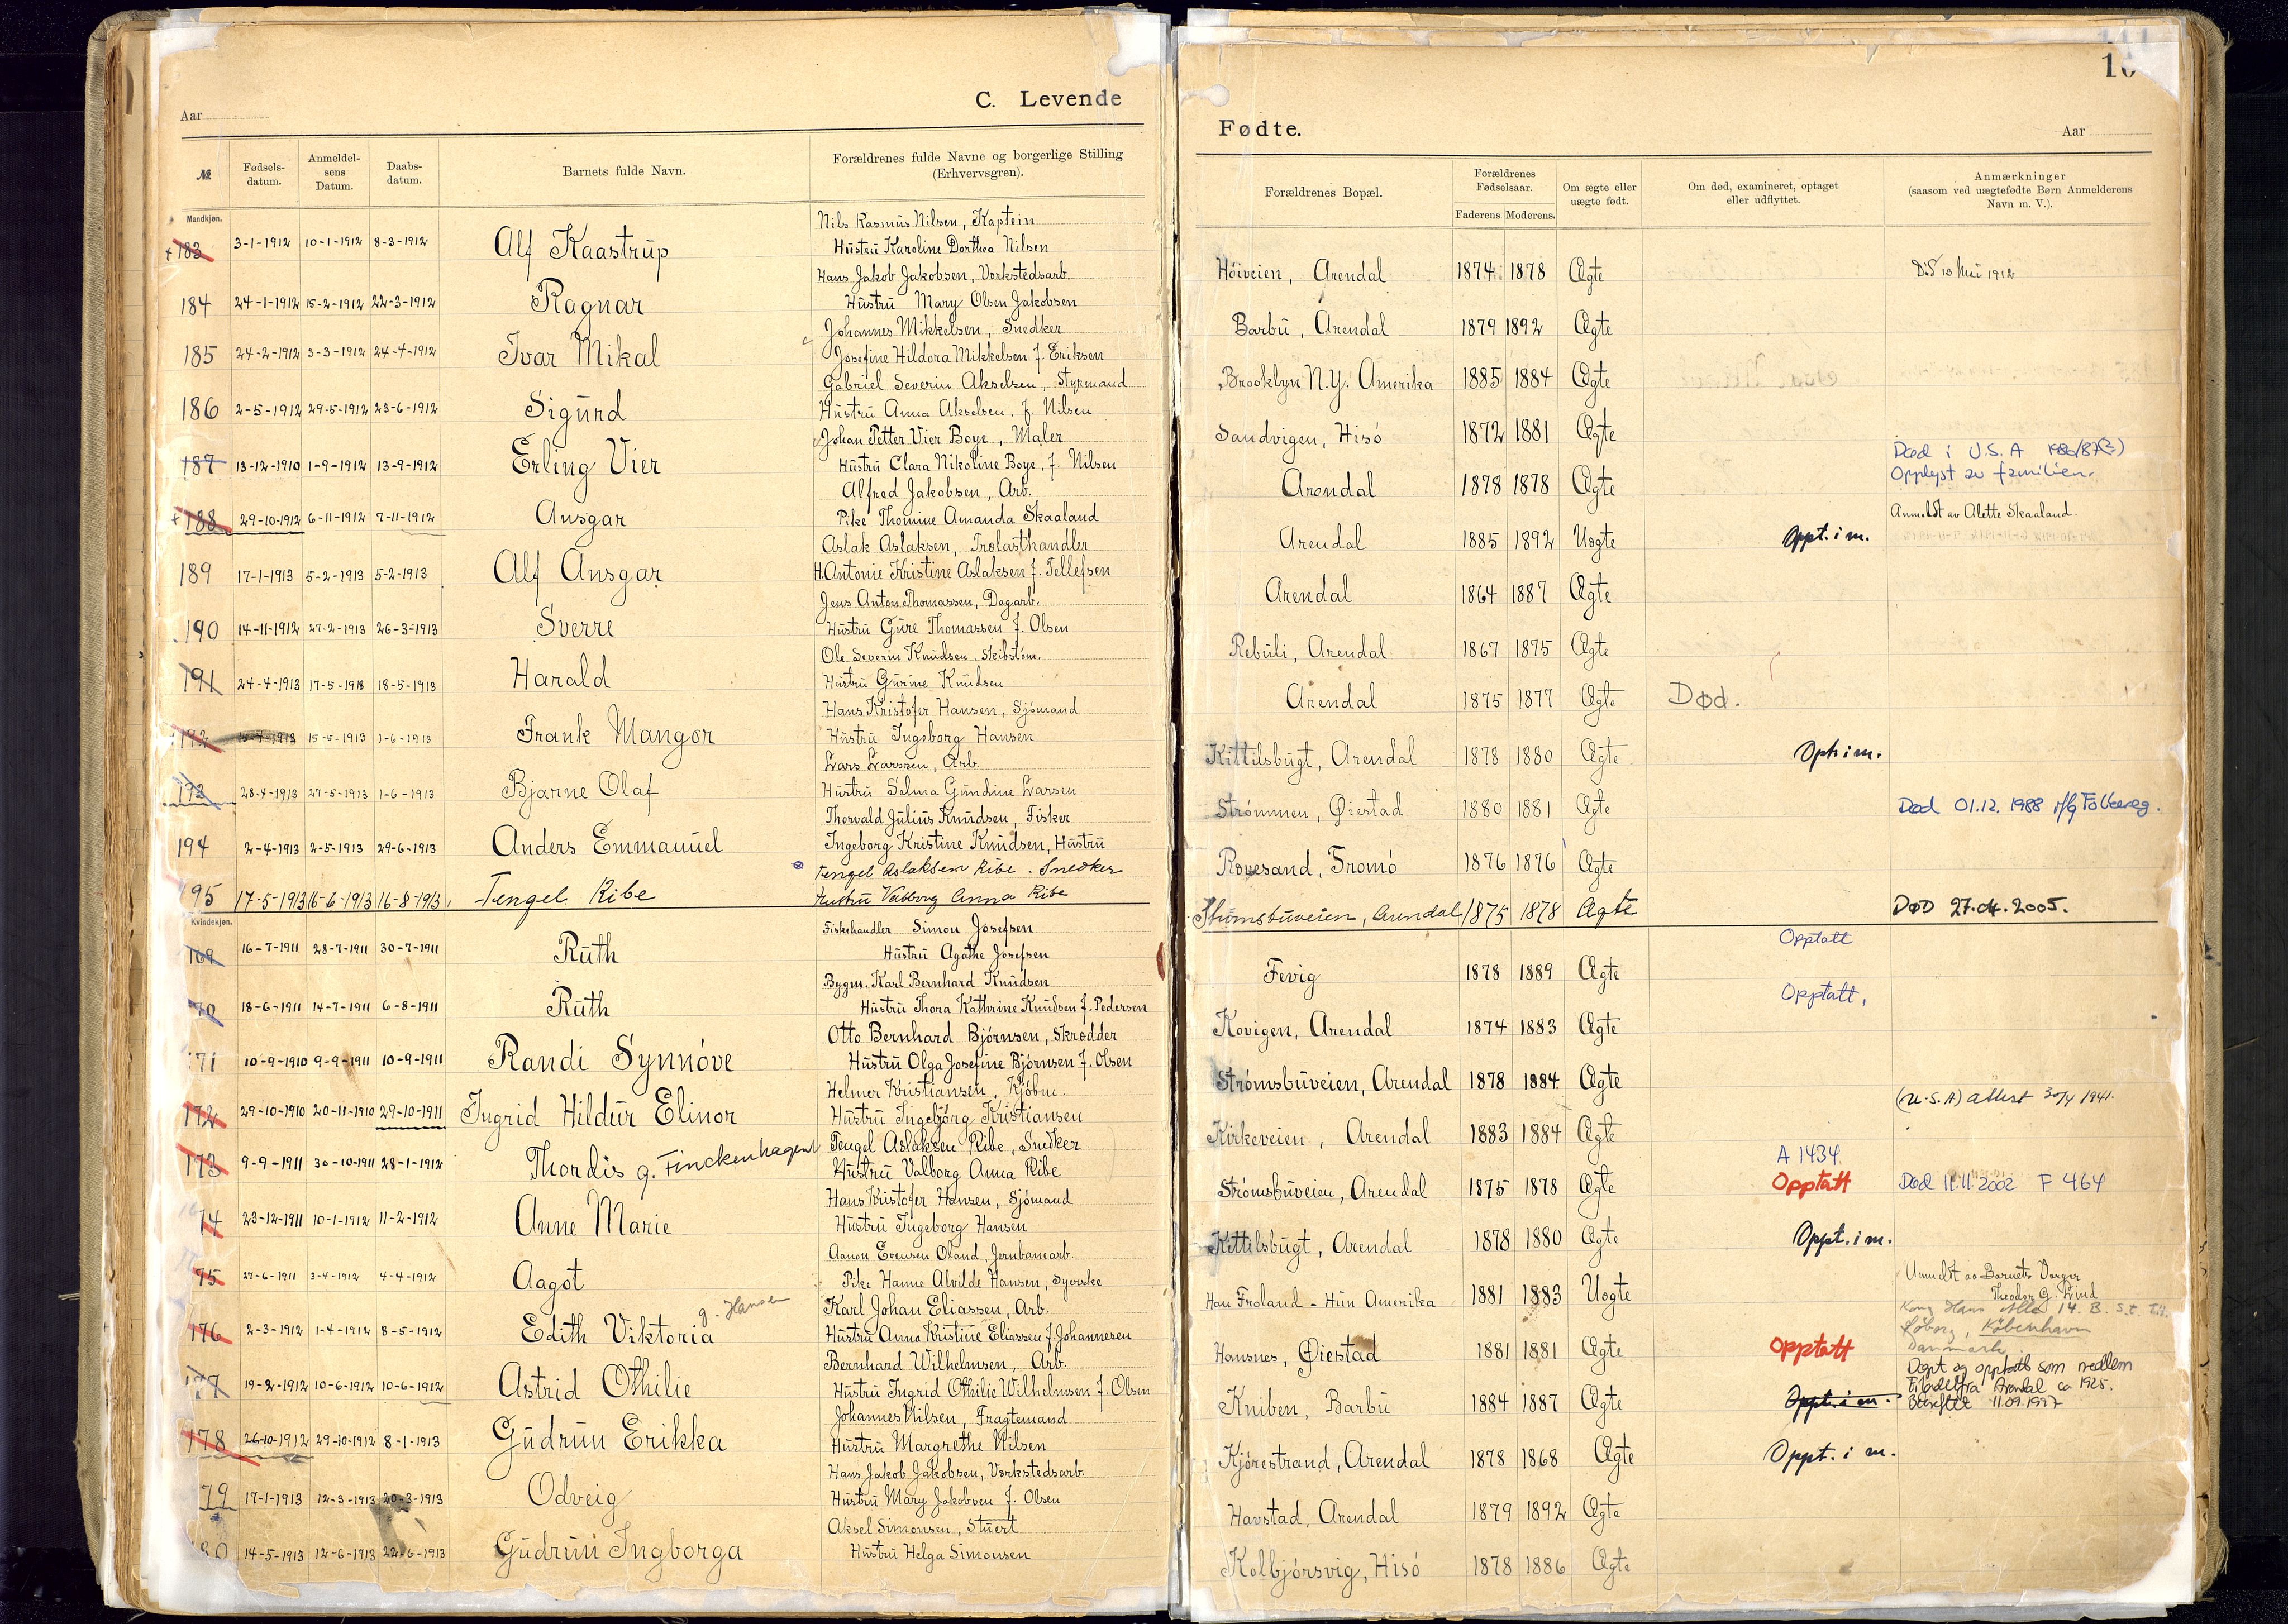 C. Levende
Aar
№ Fødsels-datum. Anmeldel-sens Datum. Daabs-datum. Barnets fulde Navn. Forældrenes fulde Navne og borgerlige Stilling (Erhvervsgren).
Mandkjøn.
Nils Rasmus Nilsen, Kaptein
183 3-1-1912 10-1-1912 8-3-1912 Alf Kaastrup Hustru Karoline Dorthea Nilsen
Hans Jakob Jakobsen, Verkstedsarb.
184 24-1-1912 15-2-1912 22-3-1912 Ragnar Hustru Mary Olsen Jakobsen
Johannes Mikkelsen, Snedker
185 24-2-1912 3-3-1912 24-4-1912 Ivar Mikal Josefine Hildora Mikkelsen f. Eriksen
Gabriel Severin Akselsen, Styrmand
186 2-5-1912 29-5-1912 23-6-1912 Sigurd Hustru Anna Akselsen. f. Nilsen
Johan Petter Vier Boye, Maler
187 13-12-1910 1-9-1912 13-9-1912 Erling Vier Hustru Clara Nikoline Boye, f. Nilsen
Alfred Jakobsen, Arb.
188 29-10-1912 6-11-1912 7-11-1912 Ansgar Pike Thomine Amanda Skaaland
Aslak Aslaksen, Trelasthandler
189 17-1-1913 5-2-1913 5-2-1913 Alf Ansgar H. Antonie Kristine Aslaksen f. Tellefsen
Jens Anton Thomassen, Dagarb.
190 14-11-1912 27-2-1913 26-3-1913 Sverre Hustru Gure Thomassen f. Olsen
Ole Severin Knudsen, Skibstøm.
191 24-4-1913 17-5-1913 18-5-1913 Harald Hustru Gurine Knudsen
Hans Kristofer Hansen, Sjómand
192 15-5-1913 1-6-1913 Frank Mangor Hustru Ingeborg Hansen
Lars Larssen, Arb.
193 28-4-1913 27-5-1913 1-6-1913 Bjarne Olaf Hustru Selma Gundine Larsen
Thorvald Julius Knudsen, Fisker
194 2-4-1913 2-5-1913 29-6-1913 Anders Emmanuel Ingeborg Kristine Knudsen, Hustru
Tengel Aslaksen Ribe. Snedker
195 17-5-1913 16-6-1913 16-8-1913 Tengel Ribe Hustru Valborg Anna Ribe
Kvindekjøn.
Fiskehandler Simon Josefsen
169 16-7-1911 28-7-1911 30-7-1911 Ruth Hustru Agathe Josefsen
Bygm. Karl Bernhard Knudsen
70 18-6-1911 14-7-1911 6-8-1911 Ruth Hustru Thora Kathrine Knudsen f. Pedersen
Otto Bernhard Bjórnsen, Skrædder
171 10-9-1910 9-9-1911 10-9-1911 Randi Synnóve Hustru Olga Josefine Bjórnsen f. Olsen
Helmer Kristiansen, Kjóbm.
172 29-10-1910 20-11-1910 29-10-1911 Ingrid Hildur Elinor Hustru Ingebjórg Kristiansen
Tengel Aslaksen Ribe, Snedker
173 9-9-1911 30-10-1911 28-1-1912 Thordis g. Finckenhagen Hustru Valborg Anna Ribe
Hans Kristofer Hansen, Sjómand
74 23-12-1911 10-1-1912 11-2-1912 Anne Marie Hustru Ingeborg Hansen
Aanon Evensen Oland, Jernbanearb.
75 27-6-1911 3-4-1912 4-4-1912 Aagot Pike Hanne Alvilde Hansen, Syerske
g. Hansen Karl Johan Eliassen, Arb.
176 2-3-1912 1-4-1912 8-5-1912 Edith Viktoria Hustru Anna Kristine Eliassen f. Johannesen
Bernhard Wilhelmsen, Arb.
177 19-2-1912 10-6-1912 10-6-1912 Astrid Othilie Hustru Ingrid Othilie Wilhelmsen f. Olsen
Johannes Nilsen, Fragtemand
178 26-10-1912 29-10-1912 8-1-1913 Gudrun Erikka Hustru Margrethe Nilsen
Hans Jakob Jakobsen, Verkstedsarb.
79 17-1-1913 12-3-1913 20-3-1913 Odveig Hustru Mary Jakobsen f. Olsen
Aksel Simonsen, Stuert
180 14-5-1913 12-6-1913 22-6-1913 Gudrun Ingborga Hustru Helga Simonsen
Fødte.
Aar
Forældrenes Bopæl. Forældrenes Fødselsaar. Faderens. Moderens. Om ægte eller uægte født. Om død, examineret, optaget eller udflyttet. Anmærkninger (saasom ved uægtefødte Børn Anmelderens Navn m. V.).
Hóiveien, Arendal 1874 1878 Ægte Død 10 Mai 1912
Barbu, Arendal 1879 1892 Ægte
Brooklyn N.Y. Amerika 1885 1884 Ægte
Sandvigen, Hisó 1872 1881 Ægte
Død i U.S.A 1986/87(?)
Opplyst av familien.
Arendal 1878 1878 Ægte
Anmeldt av Alette Skaaland.
Arendal 1885 1892 Uegte Oppt. i m.
Arendal 1864 1887 Ægte
Rebuli, Arendal 1867 1875 Ægte
Arendal 1875 1877 Ægte Død.
Kittilsbugt, Arendal 1878 1880 Ægte Opt. i m.
Strómmen, Øiestad 1880 1881 Ægte Død 01.12.1988 iflg Folkereg.
Revesand, Tromó 1876 1876 Ægte
Strømsbuveien, Arendal 1875 1878 Ægte DØD 27.04.2005.
Opptatt
Fevig 1878 1889 Ægte
Opptatt.
Kovigen, Arendal 1874 1883 Ægte
Strómsbuveien, Arendal 1878 1884 Ægte
(U.S.A) attest 30/4 1941.
Kirkeveien, Arendal 1883 1884 Ægte
A 1434
Strómsbuveien, Arendal 1875 1878 Ægte Opptatt Død 11.11.2002 F 464
Kittilsbugt, Arendal 1878 1880 Ægte Oppt. i m.
Anmeldt av Barnets Verger
Theodor G. Lind
Han Froland - Hun Amerika 1881 1883 Uegte
Kong Hans Alle 14. B. s.t. T.H.
Søborg, København
Danmark
Hansnes, Øiestad 1881 1881 Ægte Opptatt
Døpt og opptatt som medlem
Filadelfia Arendal ca 1925.
Bekreftet 11.09.1997
Kniben, Barbu 1884 1887 Ægte Oppt. i m.
Kjórestrand, Arendal 1878 1868 Ægte Oppt. i m.
Havstad, Arendal 1879 1892 Ægte
Kolbjórsvig, Hisó 1878 1886 Ægte